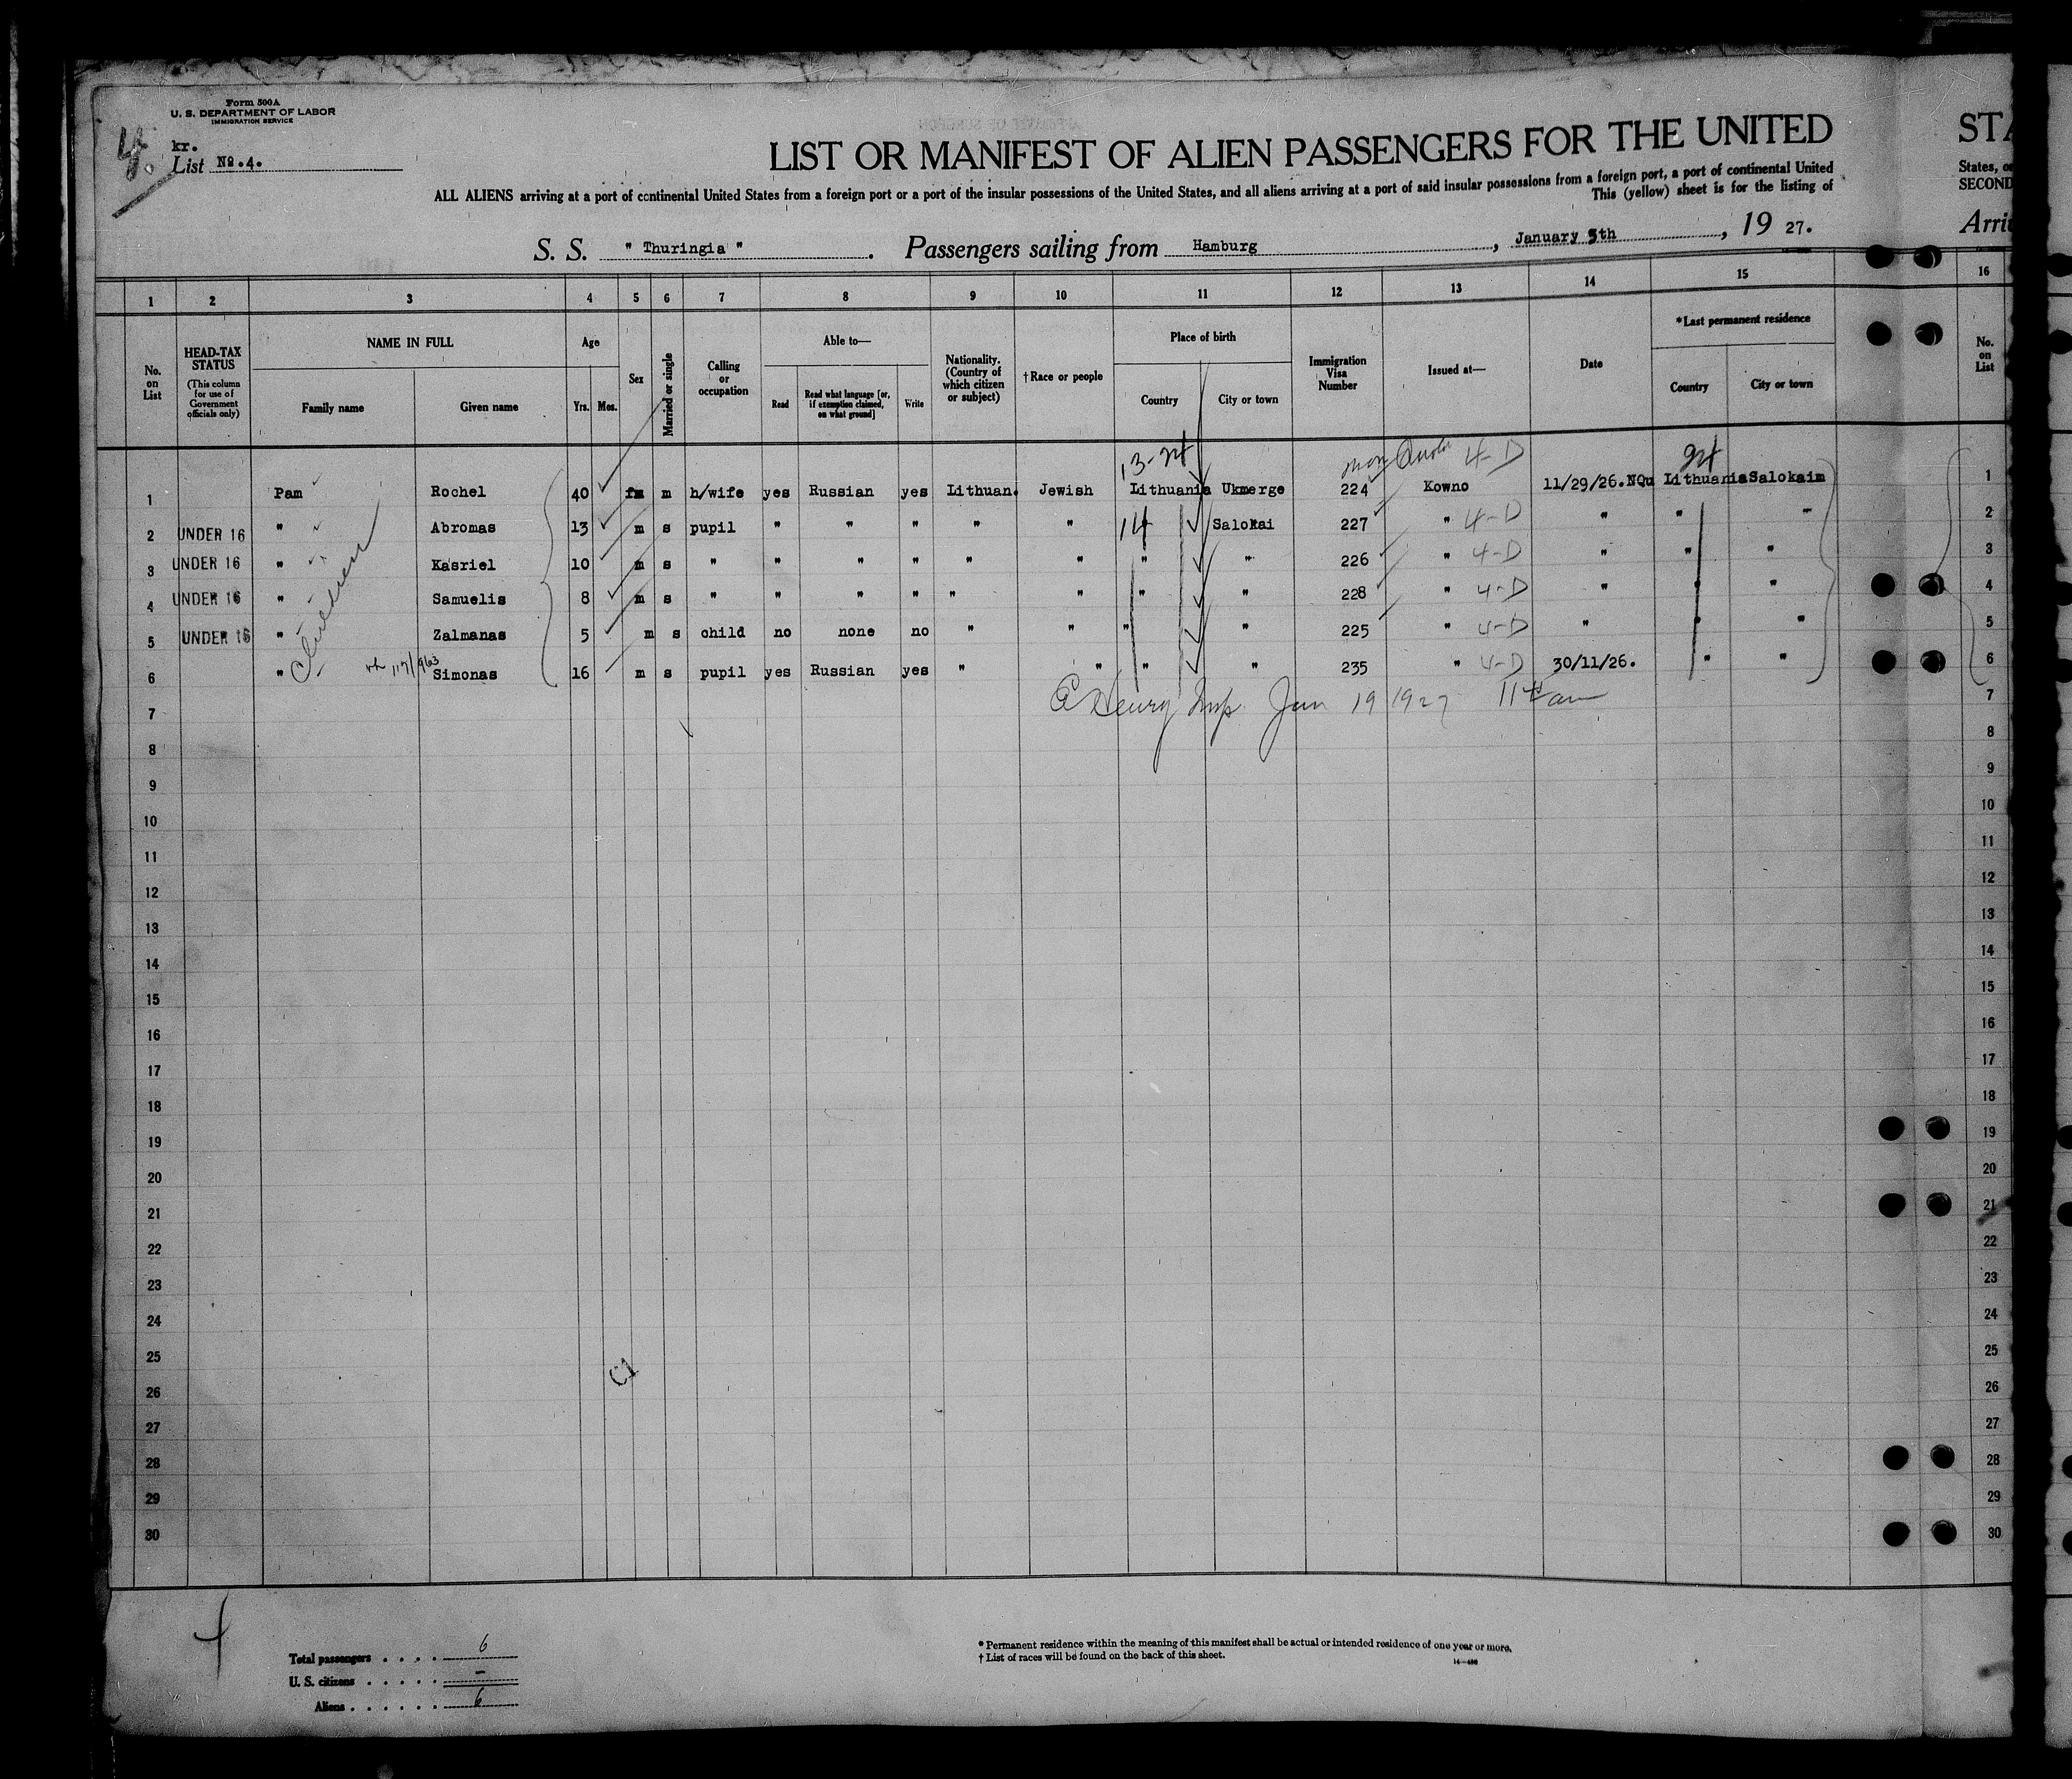 Form 500A
U. S. DEPARTMENT OF LABOR
IMMIGRATION SERVICE
4.
kr.
List No.4.
LIST OR MANIFEST OF ALIEN PASSENGERS FOR THE UNITED
STA
ALL ALIENS arriving at a port of continental United States from a foreign port or a port of the insular possessions of the United States, and all aliens arriving at a port of said insular possessions from a foreign port, a port of continental United
States, or
This (yellow) sheet is for the listing of
SECOND
S. S. " Thuringia ". Passengers sailing from Hamburg, January 5th, 19 27.
Arri
1 2 3 4 5 6 7 8 9 10 11 12 13 14 15 16
No. on List
HEAD-TAX STATUS
(This column for use of Government officials only)
NAME IN FULL
Family name
Given name
Age
Yrs.
Mos.
Sex
Married or single
Calling or occupation
Able to—
Read
Read what language [or, if exemption claimed, on what ground]
Write
Nationality. (Country of which citizen or subject)
† Race or people
Place of birth
Country
City or town
Immigration Visa Number
Issued at—
Date
*Last permanent residence
Country
City or town
No. on List
13-24 non Quota 4-D 24
1 Pam Rochel 40 fm m h/wife yes Russian yes Lithuan. Jewish Lithuania Ukmerge 224 Kowno 11/29/26.NQu Lithuania Salokaim 1
2 UNDER 16 " Abromas 13 m s pupil " " " " " 14 Salokai 227 " 4-D " " " 2
3 UNDER 16 " Kasriel 10 m s " " " " " " " " 226 " 4-D " " " 3
4 UNDER 16 " Samuelis 8 m s " " " " " " " " 228 " 4-D " " " 4
5 UNDER 16 " Zalmanas 5 m s child no none no " " " " 225 " 4-D " " " 5
6 " Simonas 16 m s pupil yes Russian yes " " " " 235 " 4-D 30/11/26. " " 6
Children
7 Henry Insp. Jan 19 1927 11 am 7
8 8
9 9
10 10
11 11
12 12
13 13
14 14
15 15
16 16
17 17
18 18
19 19
20 20
21 21
22 22
23 23
24 24
25 25
C1
26 26
27 27
28 28
29 29
30 30
Total passengers . . . . 6
U. S. citizens . . . . . –
Aliens . . . . . . 6
* Permanent residence within the meaning of this manifest shall be actual or intended residence of one year or more.
† List of races will be found on the back of this sheet.